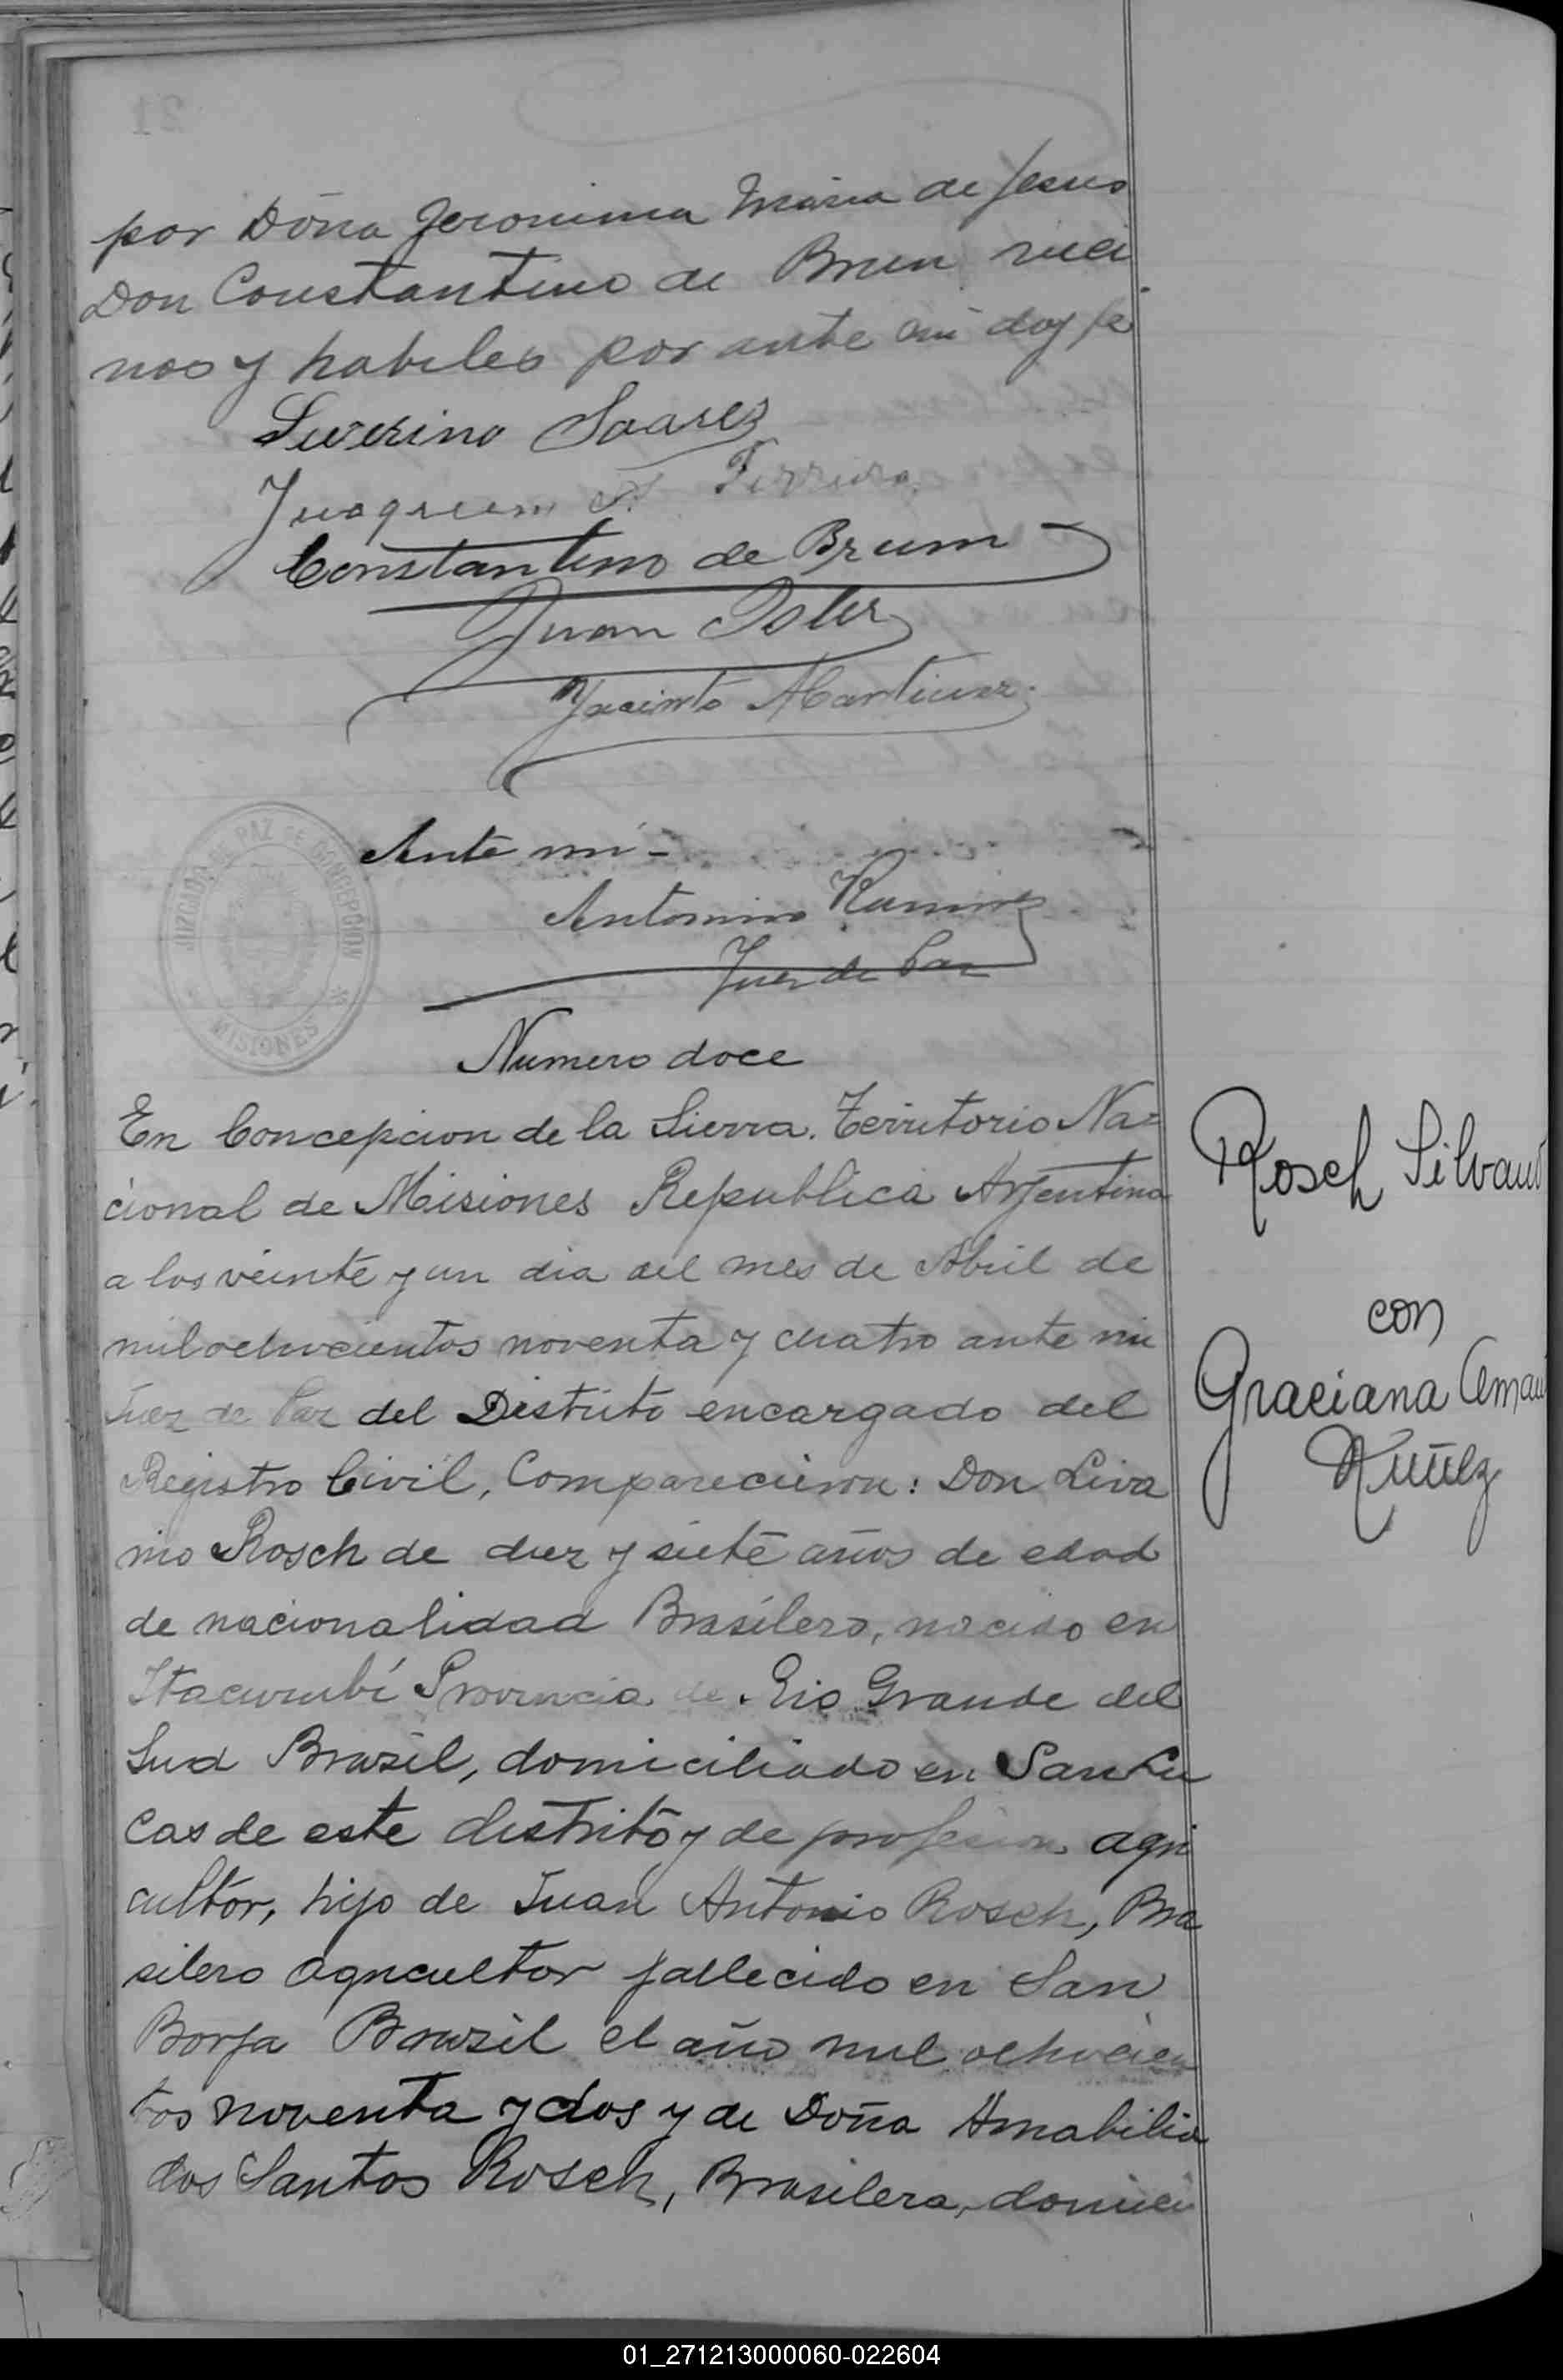 por Doña Jeronima Maria de Jesus
Don Constantino de Brun veci
nos y habiles por ante mi doy fe
Severino Soarez
Juaqueim A. Ferreira
Constantino de Brum
Juan
Jacinto Martinez
JUZGADO DE PAZ DE CONCEPCIÓN
MISIONES
Ante mi-
Antonino Ramirez
Juez de Paz
Numero doce
En Concepcion de la Sierra. Territorio Na=
cional de Misiones Republica Argentina
a los veinte y un dia del mes de Abril de
mil ochocientos noventa y cuatro ante mi
Juez de Paz del Distrito encargado del
Registro Civil, Comparecieron: Don Silva
no Rosch de diez y siete años de edad
de nacionalidad Brasilero, nacido en
Itacurubí Provincia de Rio Grande del
Sud Brasil, domiciliado en San Lu
cas de este distrito y de profesion agri
cultor, hijo de Juan Antonio Rosch, Bra
silero agricultor fallecido en San
Borja Brasil el año mil ochocien
tos noventa y dos y de Doña Amabilia
dos Santos Rosch, Brasilera, domici
Rosch Silvano
con
Graciana
Nuñez
01_271213000060-022604